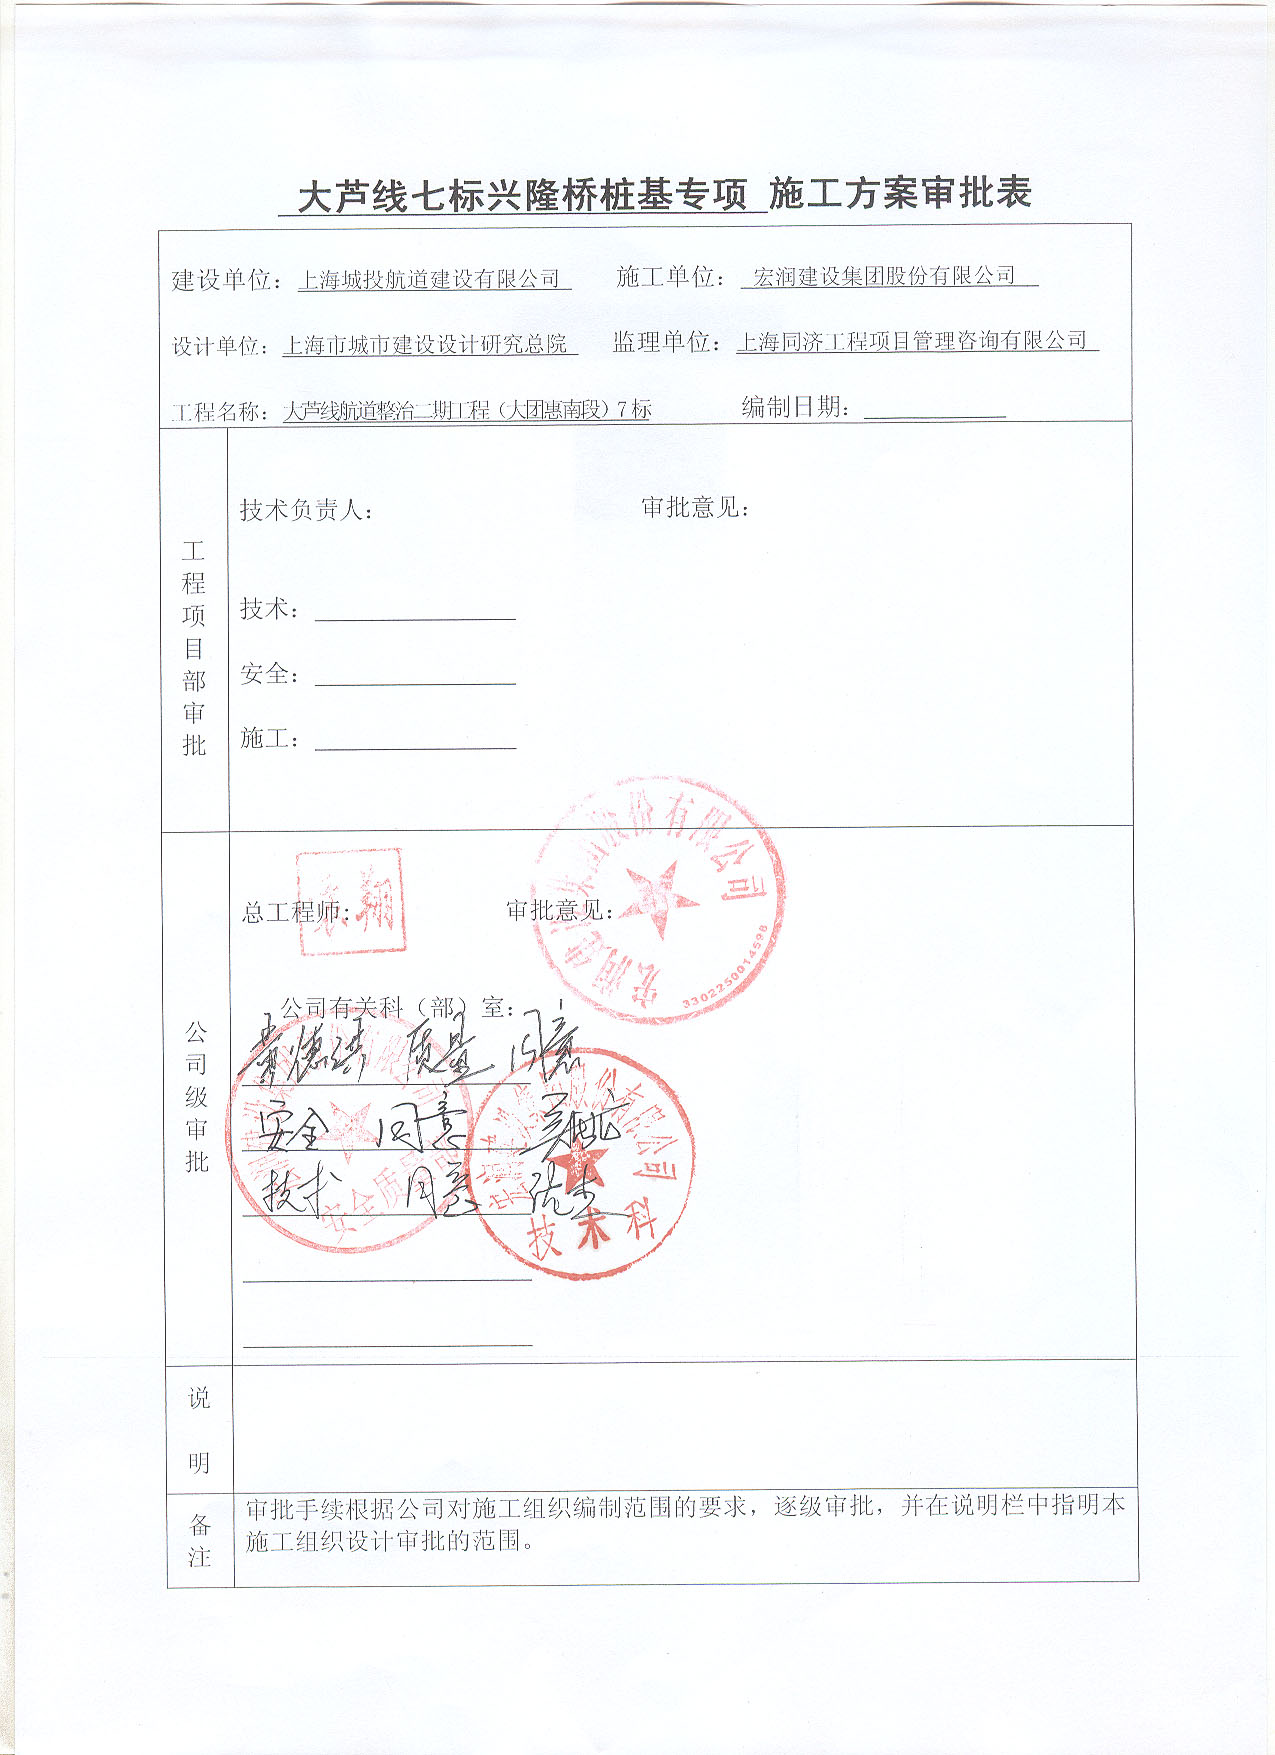 大芦线七标兴隆桥桩基专项 施工方案审批表
建设单位：上海城投航道建设有限公司 施工单位：宏润建设集团股份有限公司
设计单位：上海市城市建设设计研究总院 监理单位：上海同济工程项目管理咨询有限公司
工程名称：大芦线航道整治二期工程（大团惠南段）7标 编制日期：
工程项目部审批
技术负责人： 审批意见：
技术：
安全：
施工：
公司级审批
宏润建设集团股份有限公司
3302250014598
翔
总工程师： 审批意见：
公司有关科（部）室：
质量 同意
安全 同意
技术 同意
安全质量部
宏润建设集团股份有限公司
技术科
说明
备注
审批手续根据公司对施工组织编制范围的要求，逐级审批，并在说明栏中指明本
施工组织设计审批的范围。